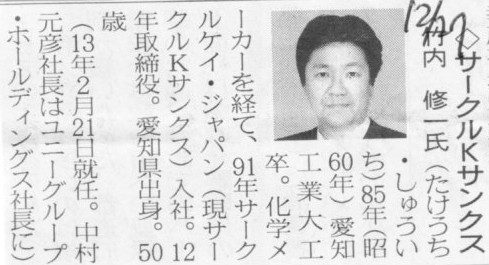 12/27
◇サークルKサンクス
竹内 修一氏(たけうち
・しゅうい
ち)85年(昭
60年)愛知
工業大工
卒。化学メ
ーカーを経て、91年サーク
ルケイ・ジャパン(現サー
クルKサンクス)入社。12
年取締役。愛知県出身。50
歳
(13年2月21日就任。中村
元彦社長はユニーグループ
・ホールディングス社長に)